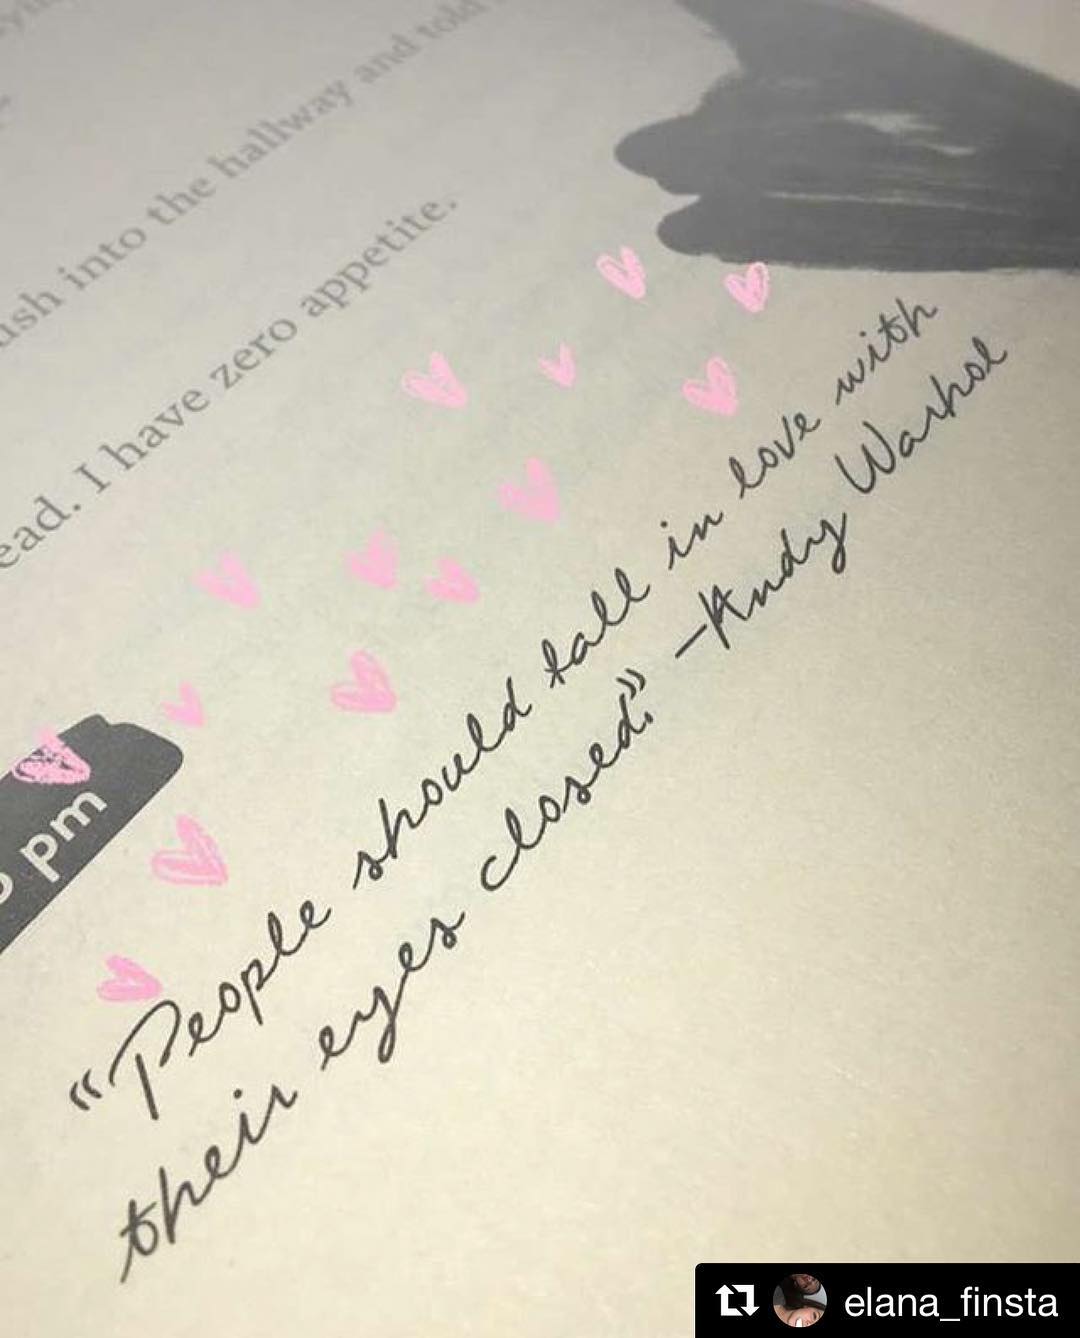 ush into the hallway and told
ead. I have zero appetite.
pm
"People should fall in love with
their eyes closed." -Andy Warhol
elana_finsta